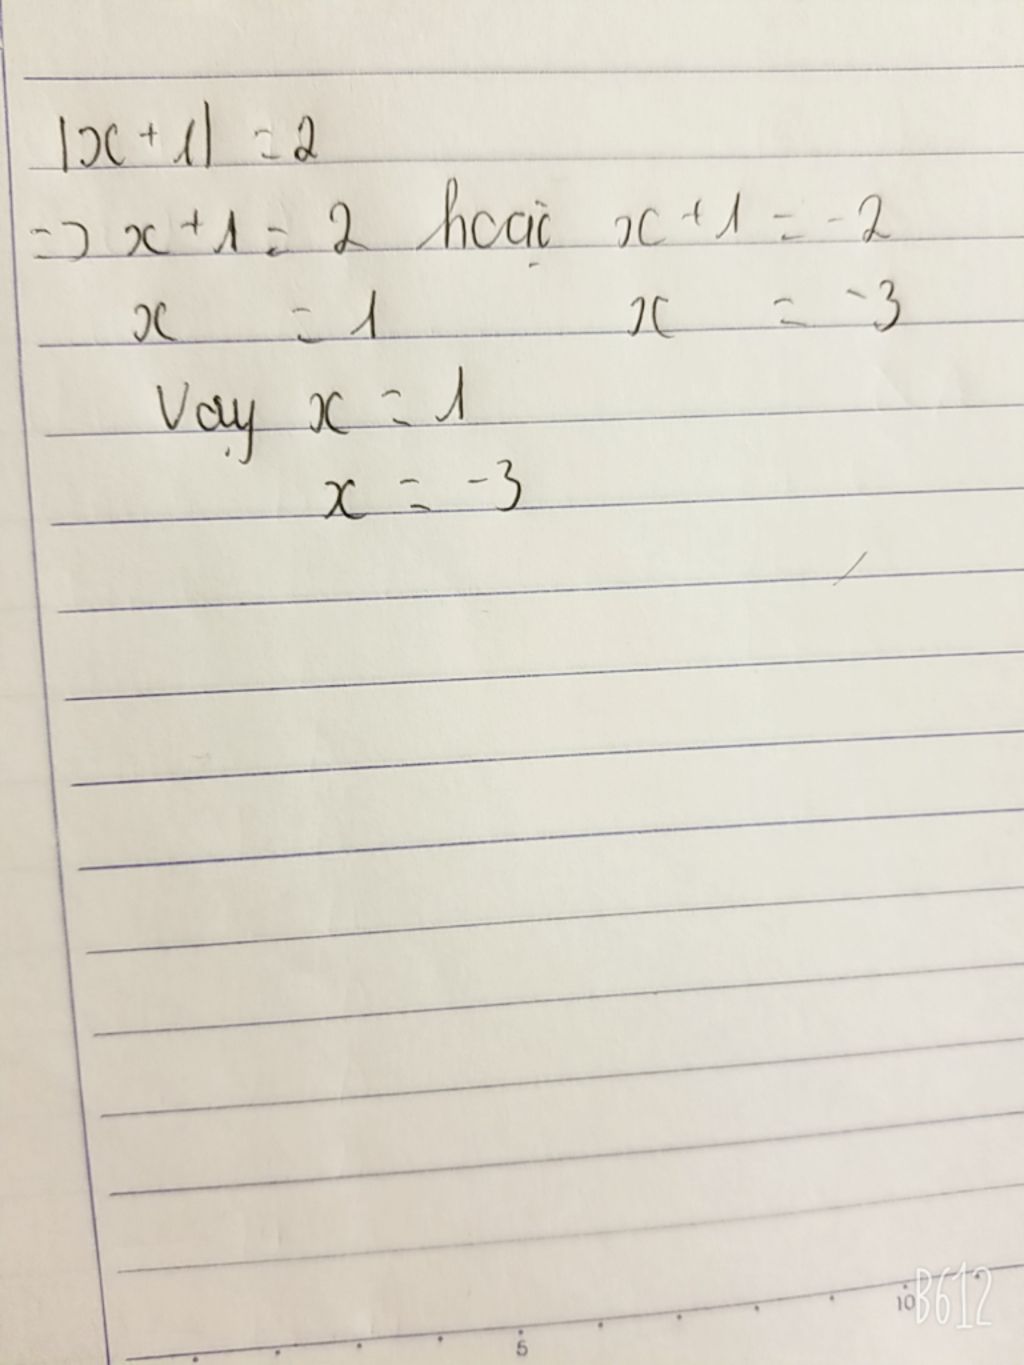 |x + 1| = 2
=> x + 1 = 2 hoặc x + 1 = -2
x = 1 x = -3
Vậy x = 1
x = -3
10
B612
5